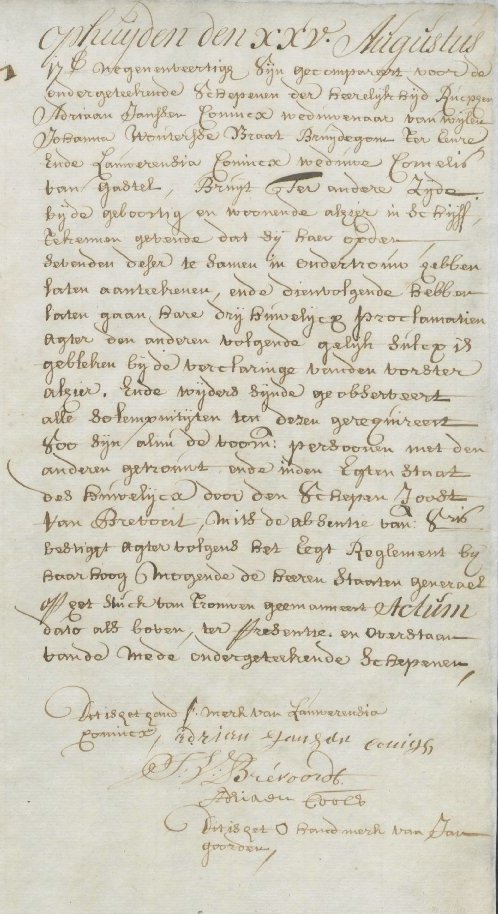 ophuijden den xxv. Augustus
17C negenenveertigh sijn gecompareert voor de
ondergeteekende Schepenen der heerelijkhijd Rucphen
Adriaan Janssen Conincx weduwenaar van wijlen
Johanna Woutersse Braat Bruijdegom ter eenre
Ende Lauwerendia Conincx weduwe Cornelis
van Gastel, Bruijt ter andere Zijde
bijde geboortig en woonende alhier in Schijff,
tekennen gevende dat sij haer op den
sevenden deser te samen in ondertrouw hebben
laten aanteekenen, ende dienvolgende hebben
laten gaan hare drij huwelijcx proclamatien
agter den anderen volgende gelijk sulcx is
gebleken bij de verclaringe vanden vorster
alhier. Ende wijders sijnde geobserveert
alle solempnitijten ten dezen gerequireert
Soo sijn alnu de voorn: persoonen met den
anderen getrouwt ende inden Egten Staat
des huwelijcx door den Schepen Joost
van Brevoort, Mits de absentie van
bevestigt agtervolgens het Egt Reglement bij
haar hoog Mogende de heeren Staaten generael
op het stuck van trouwen geemaneert Actum
dato als boven, ter presentie en overstaan
vande mede ondergeteekende Schepenen,
Dit is het hand merk van Lauwerendia
Conincx, Adriaen Jansen conings
J: V: Brevoordt.
Adriaen Cools
Dit is het O handmerk van Jan
goorden,